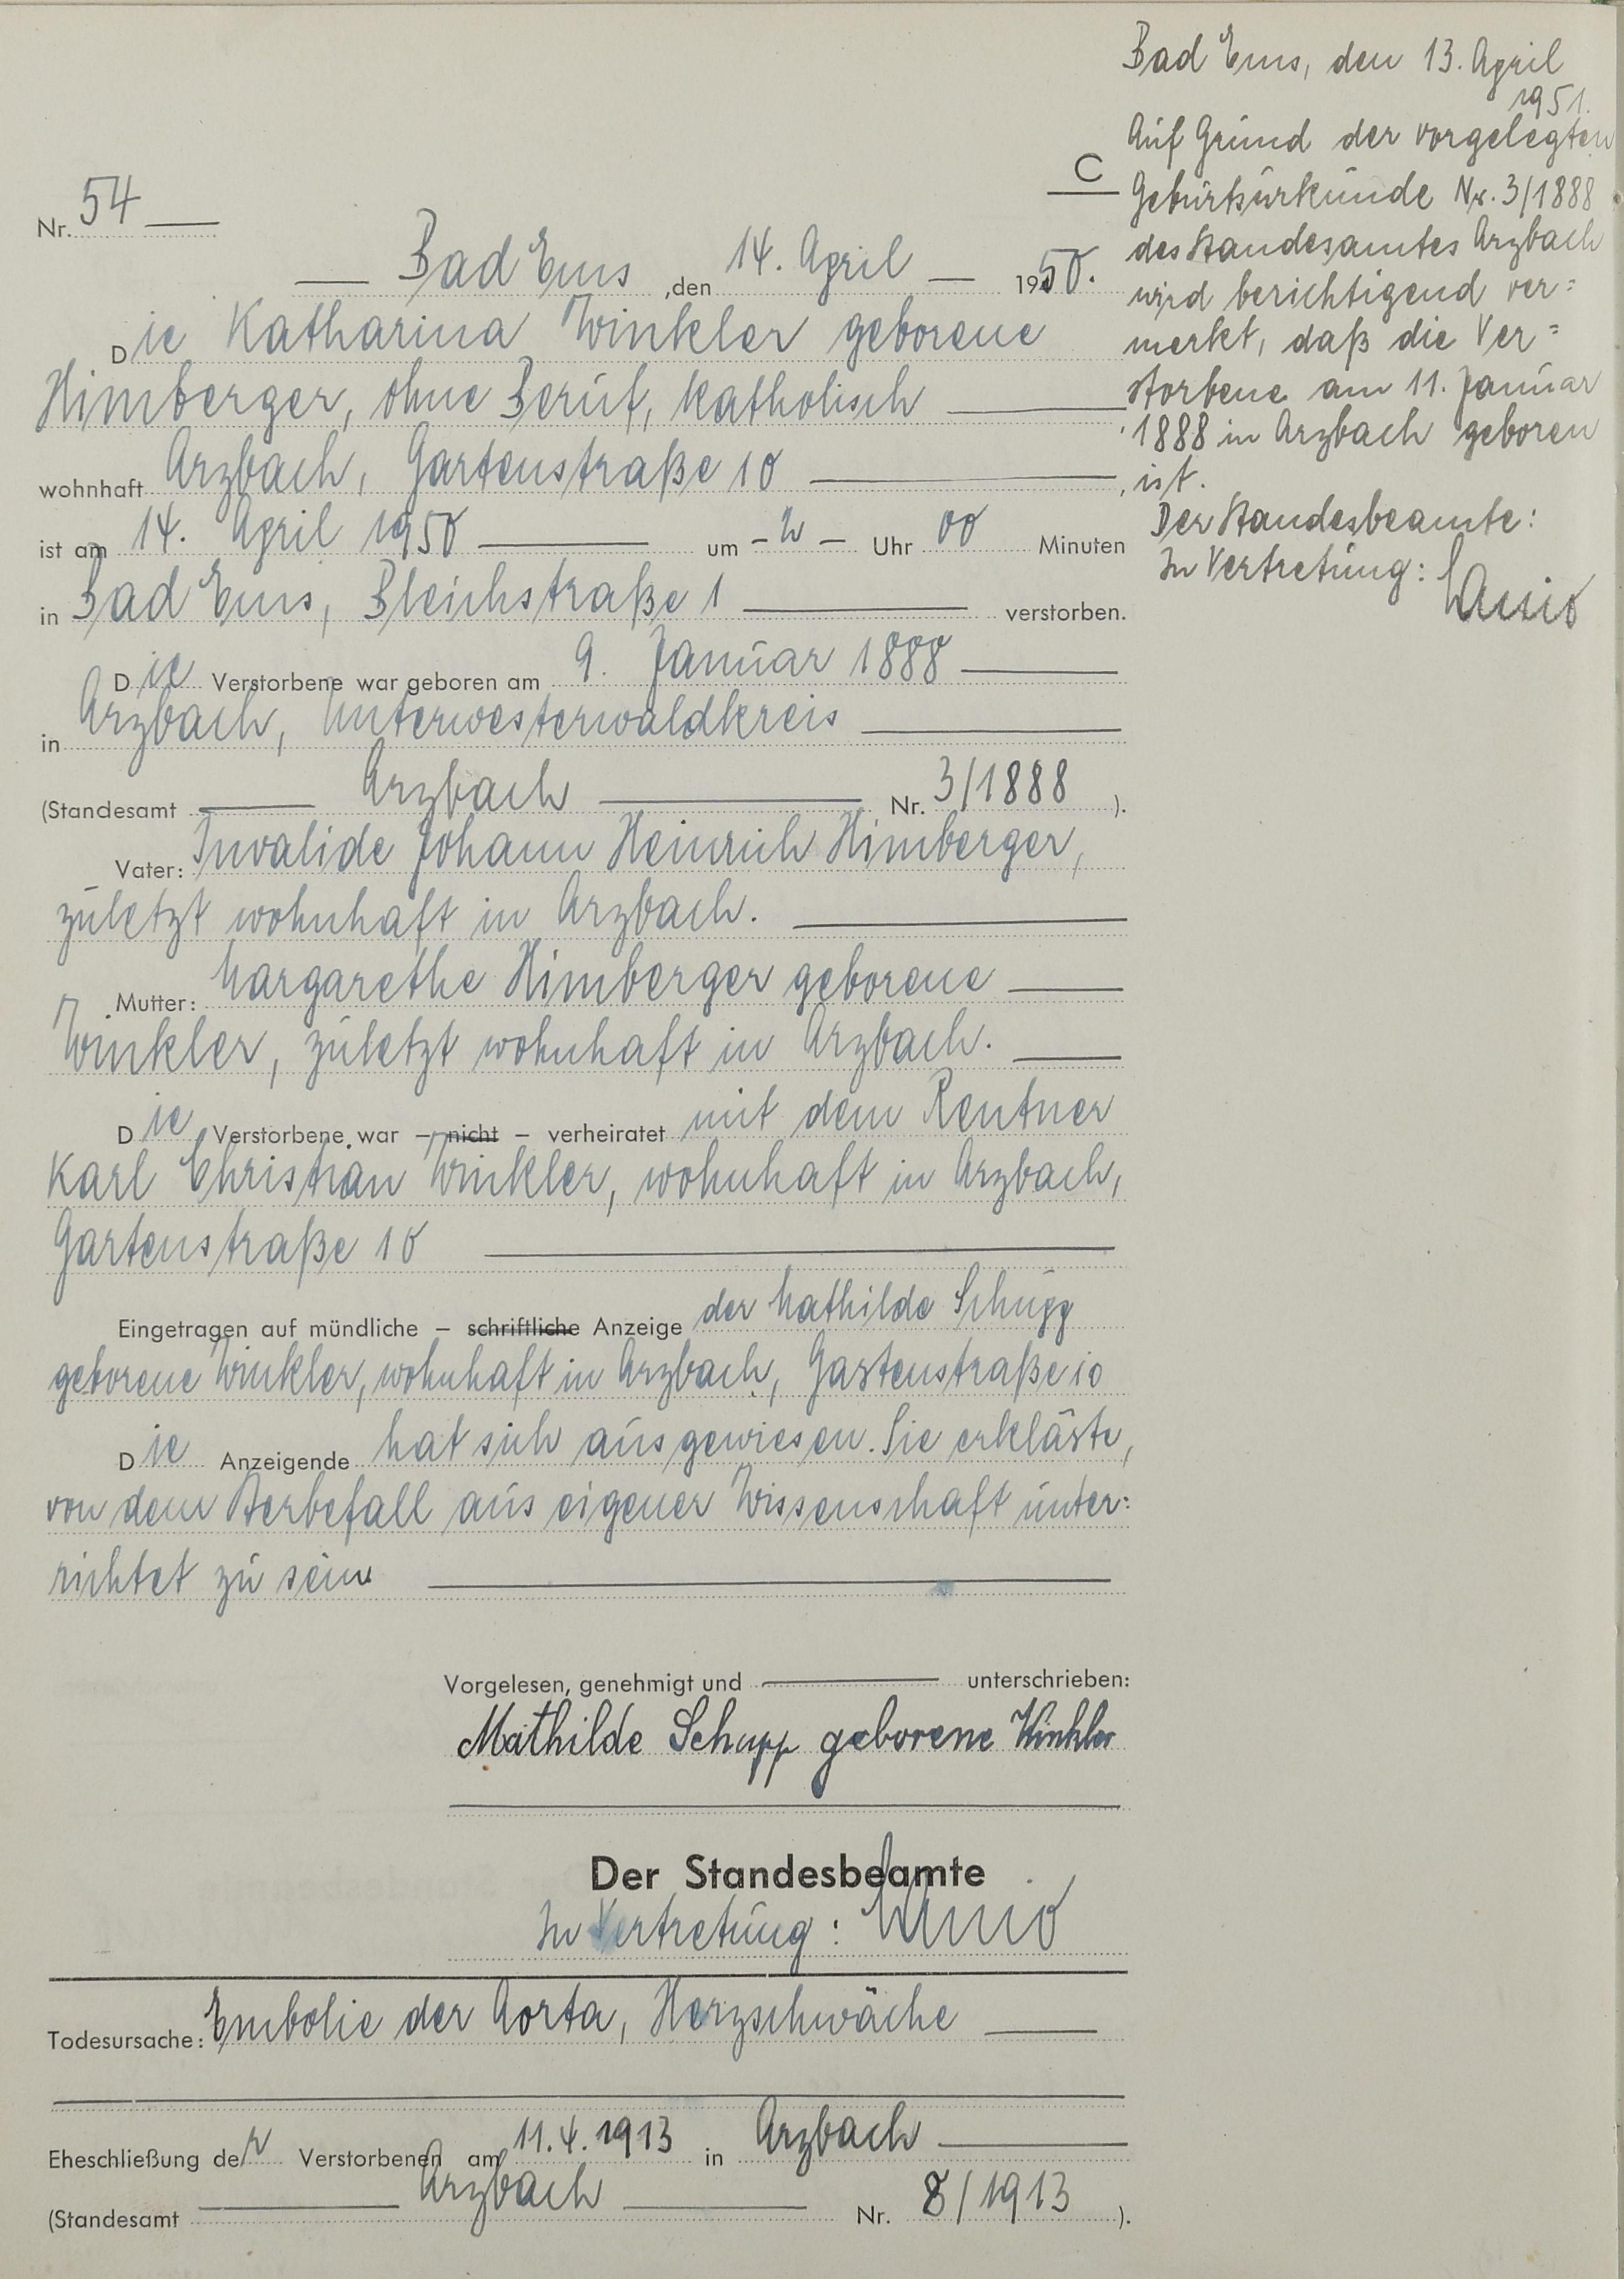 Nr. 54
C
Bad Ems, den 14. April 1950.
Die Katharina Winkler geborene
Himberger, ohne Beruf, katholisch
wohnhaft Arzbach, Gartenstraße 10,
ist am 14. April 1950 um - 2 - Uhr 00 Minuten
in Bad Ems, Bleichstraße 1 verstorben.
Die Verstorbene war geboren am 9. Januar 1888
in Arzbach, Unterwesterwaldkreis
(Standesamt Arzbach Nr. 3/1888 ).
Vater: Invalide Johann Heinrich Himberger,
zuletzt wohnhaft in Arzbach.
Mutter: Margarethe Himberger geborene
Winkler, zuletzt wohnhaft in Arzbach.
Die Verstorbene war – nicht – verheiratet mit dem Rentner
Karl Christian Winkler, wohnhaft in Arzbach,
Gartenstraße 10
Eingetragen auf mündliche – schriftliche Anzeige der Mathilde Schupp
geborene Winkler, wohnhaft in Arzbach, Gartenstraße 10
Die Anzeigende hat sich ausgewiesen. Sie erklärte,
von dem Sterbefall aus eigener Wissenschaft unter=
richtet zu sein
Vorgelesen, genehmigt und unterschrieben:
Mathilde Schupp geborene Winkler
Der Standesbeamte
In Vertretung:
Todesursache: Embolie der Aorta, Herzschwäche
Eheschließung der Verstorbenen am 11.4.1913 in Arzbach
(Standesamt Arzbach Nr. 8/1913 ).
Bad Ems, den 13. April
1951.
Auf Grund der vorgelegten
Geburtsurkunde Nr. 3/1888
des Standesamtes Arzbach
wird berichtigend ver=
merkt, daß die Ver=
storbene am 11. Januar
1888 in Arzbach geboren
ist.
Der Standesbeamte:
In Vertretung: